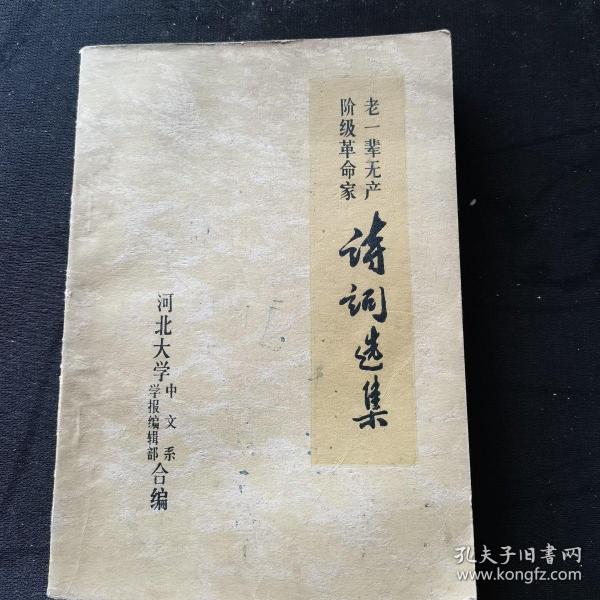 老一辈无产
阶级革命家
诗词选集
河北大学中文系
学报编辑部合编
孔夫子旧书网
www.kongfz.com